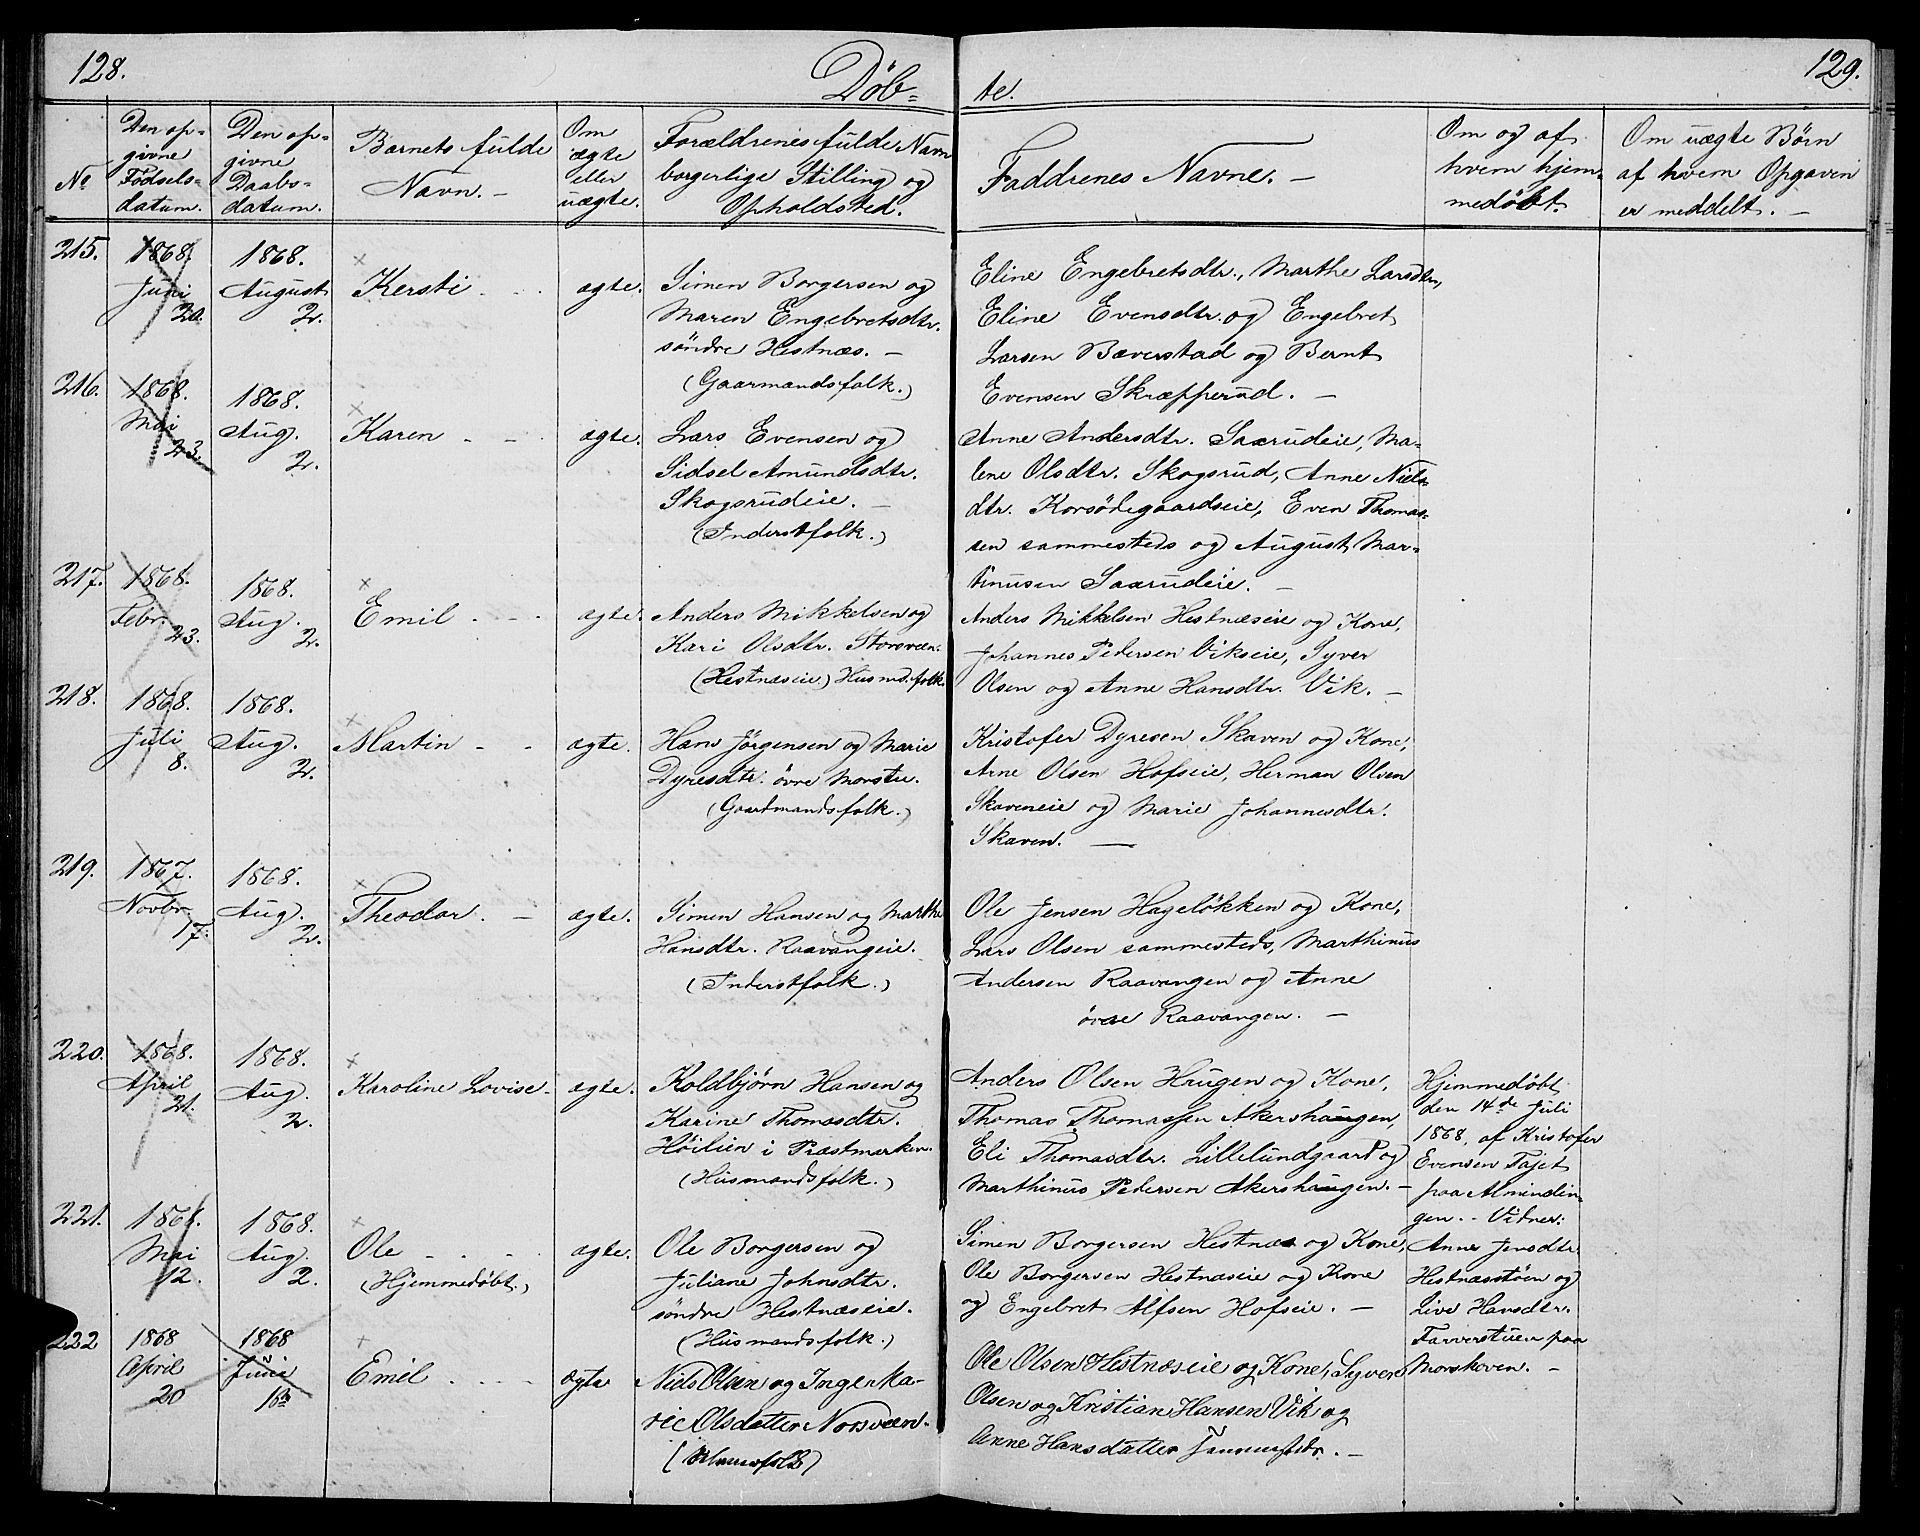 128.
Døb-
te.
129.
No
Den op-
givne
Fødsels-
datum.
Den op-
givne
Daabs-
datum.
Barnets fulde
Navn. -
Om
ægte
eller
uægte.
Forældrenes fulde Navn
borgerlige Stilling og
Opholdsted.
Faddrenes Navne. -
Om og af
hvem hjem-
medøbt.
Om uægte Børn
af hvem Opgaven
er meddelt. -
215.
1868.
Juni
20.
1868.
August
2.
Kersti
ægte.
Simen Borgersen og
Maren Engebretsdtr.
söndre Hestnæs. -
(Gaarmandsfolk.)
Eline Engebretsdtr., Marthe Larsdtr,
Eline Evensdtr. og Engebret
Larsen Bæverstad og Bernt
Evensen Skræpperud. -
216.
1868.
Mai
23.
1868.
Aug.
2.
Karen
ægte.
Lars Evensen og
Sidsel Amundsdtr.
Skogsrudeie. -
(Inderstfolk.)
Anne Andersdtr. Saxrudeie, Ma-
lene Olsdtr. Skogsrud, Anne Niels-
dtr. Korsödegaardseie, Even Thomas-
sen sammesteds og August Mar-
tinusen Saxrudeie. -
217.
1868.
Febr.
23.
1868.
Aug.
2.
Emil
ægte.
Anders Mikkelsen og
Kari Olsdtr. Storsveen.
(Hestnæseie) Husmd.folk.
Anders Mikkelsen Hestnæseie og Kone,
Johannes Pedersen Vikseie, Syver
Olsen og Anne Hansdtr. Vik. -
218.
1868.
Juli
8.
1868.
Aug.
2.
Martin
ægte.
Hans Jörgensen og Marie
Dyresdtr. övre Morstu.
(Gaardmandsfolk.)
Kristofer Dyresen Skaven og Kone,
Arne Olsen Hofseie, Herman Olsen
Skaveneie og Marie Johannesdtr.
Skaven. -
219.
1867.
Novbr.
17.
1868.
Aug.
2.
Theodor.
ægte.
Simen Hansen og Marthe
Hansdtr. Raavangeie.
(Inderstfolk.)
Ole Jensen Hageløkken og Kone,
Lars Olsen sammesteds, Marthinus
Andersen Raavangen og Anne
övre Raavangen. -
220.
1868.
April
21.
1868.
Aug.
2.
Karoline Lovise.
ægte.
Koldbjørn Hansen og
Karine Thomasdtr.
Höilien i Præstmarken.
(Husmandsfolk.)
Anders Olsen Haugen og Kone,
Thomas Thomassen Akershaugen,
Eli Thomasdtr. Lillelundgaard og
Marthinus Pedersen Akershaugen. -
Hjemmedøbt
den 14de Juli
1868, af Kristofer
Evensen Tajet
paa Almindin-
gen. - Vidner:
Anne Jensdtr.
Hestnæsstøen og
Live Hansdtr.
Farverstuen paa
Morskoven. -
221.
1868.
Mai
12.
1868.
Aug.
2.
Ole
(Hjemmedøbt.)
ægte.
Ole Borgersen og
Juliane Johnsdtr.
söndre Hestnæseie.
(Husmandsfolk.)
Simen Borgersen Hestnæs og Kone,
Ole Borgersen Hestnæseie og Kone
og Engebret Alfsen Hofseie. -
222
1868
April
20
1868
Juni
Emil
ægte
Niels Olsen og Inger Ka-
rie Olsdatter Norsveen.
Ole Olsen Hestnæseie og Kone, Syver
Olsen og Kristian Hansen Vik og
Anne Hansdatter sammesteds. -